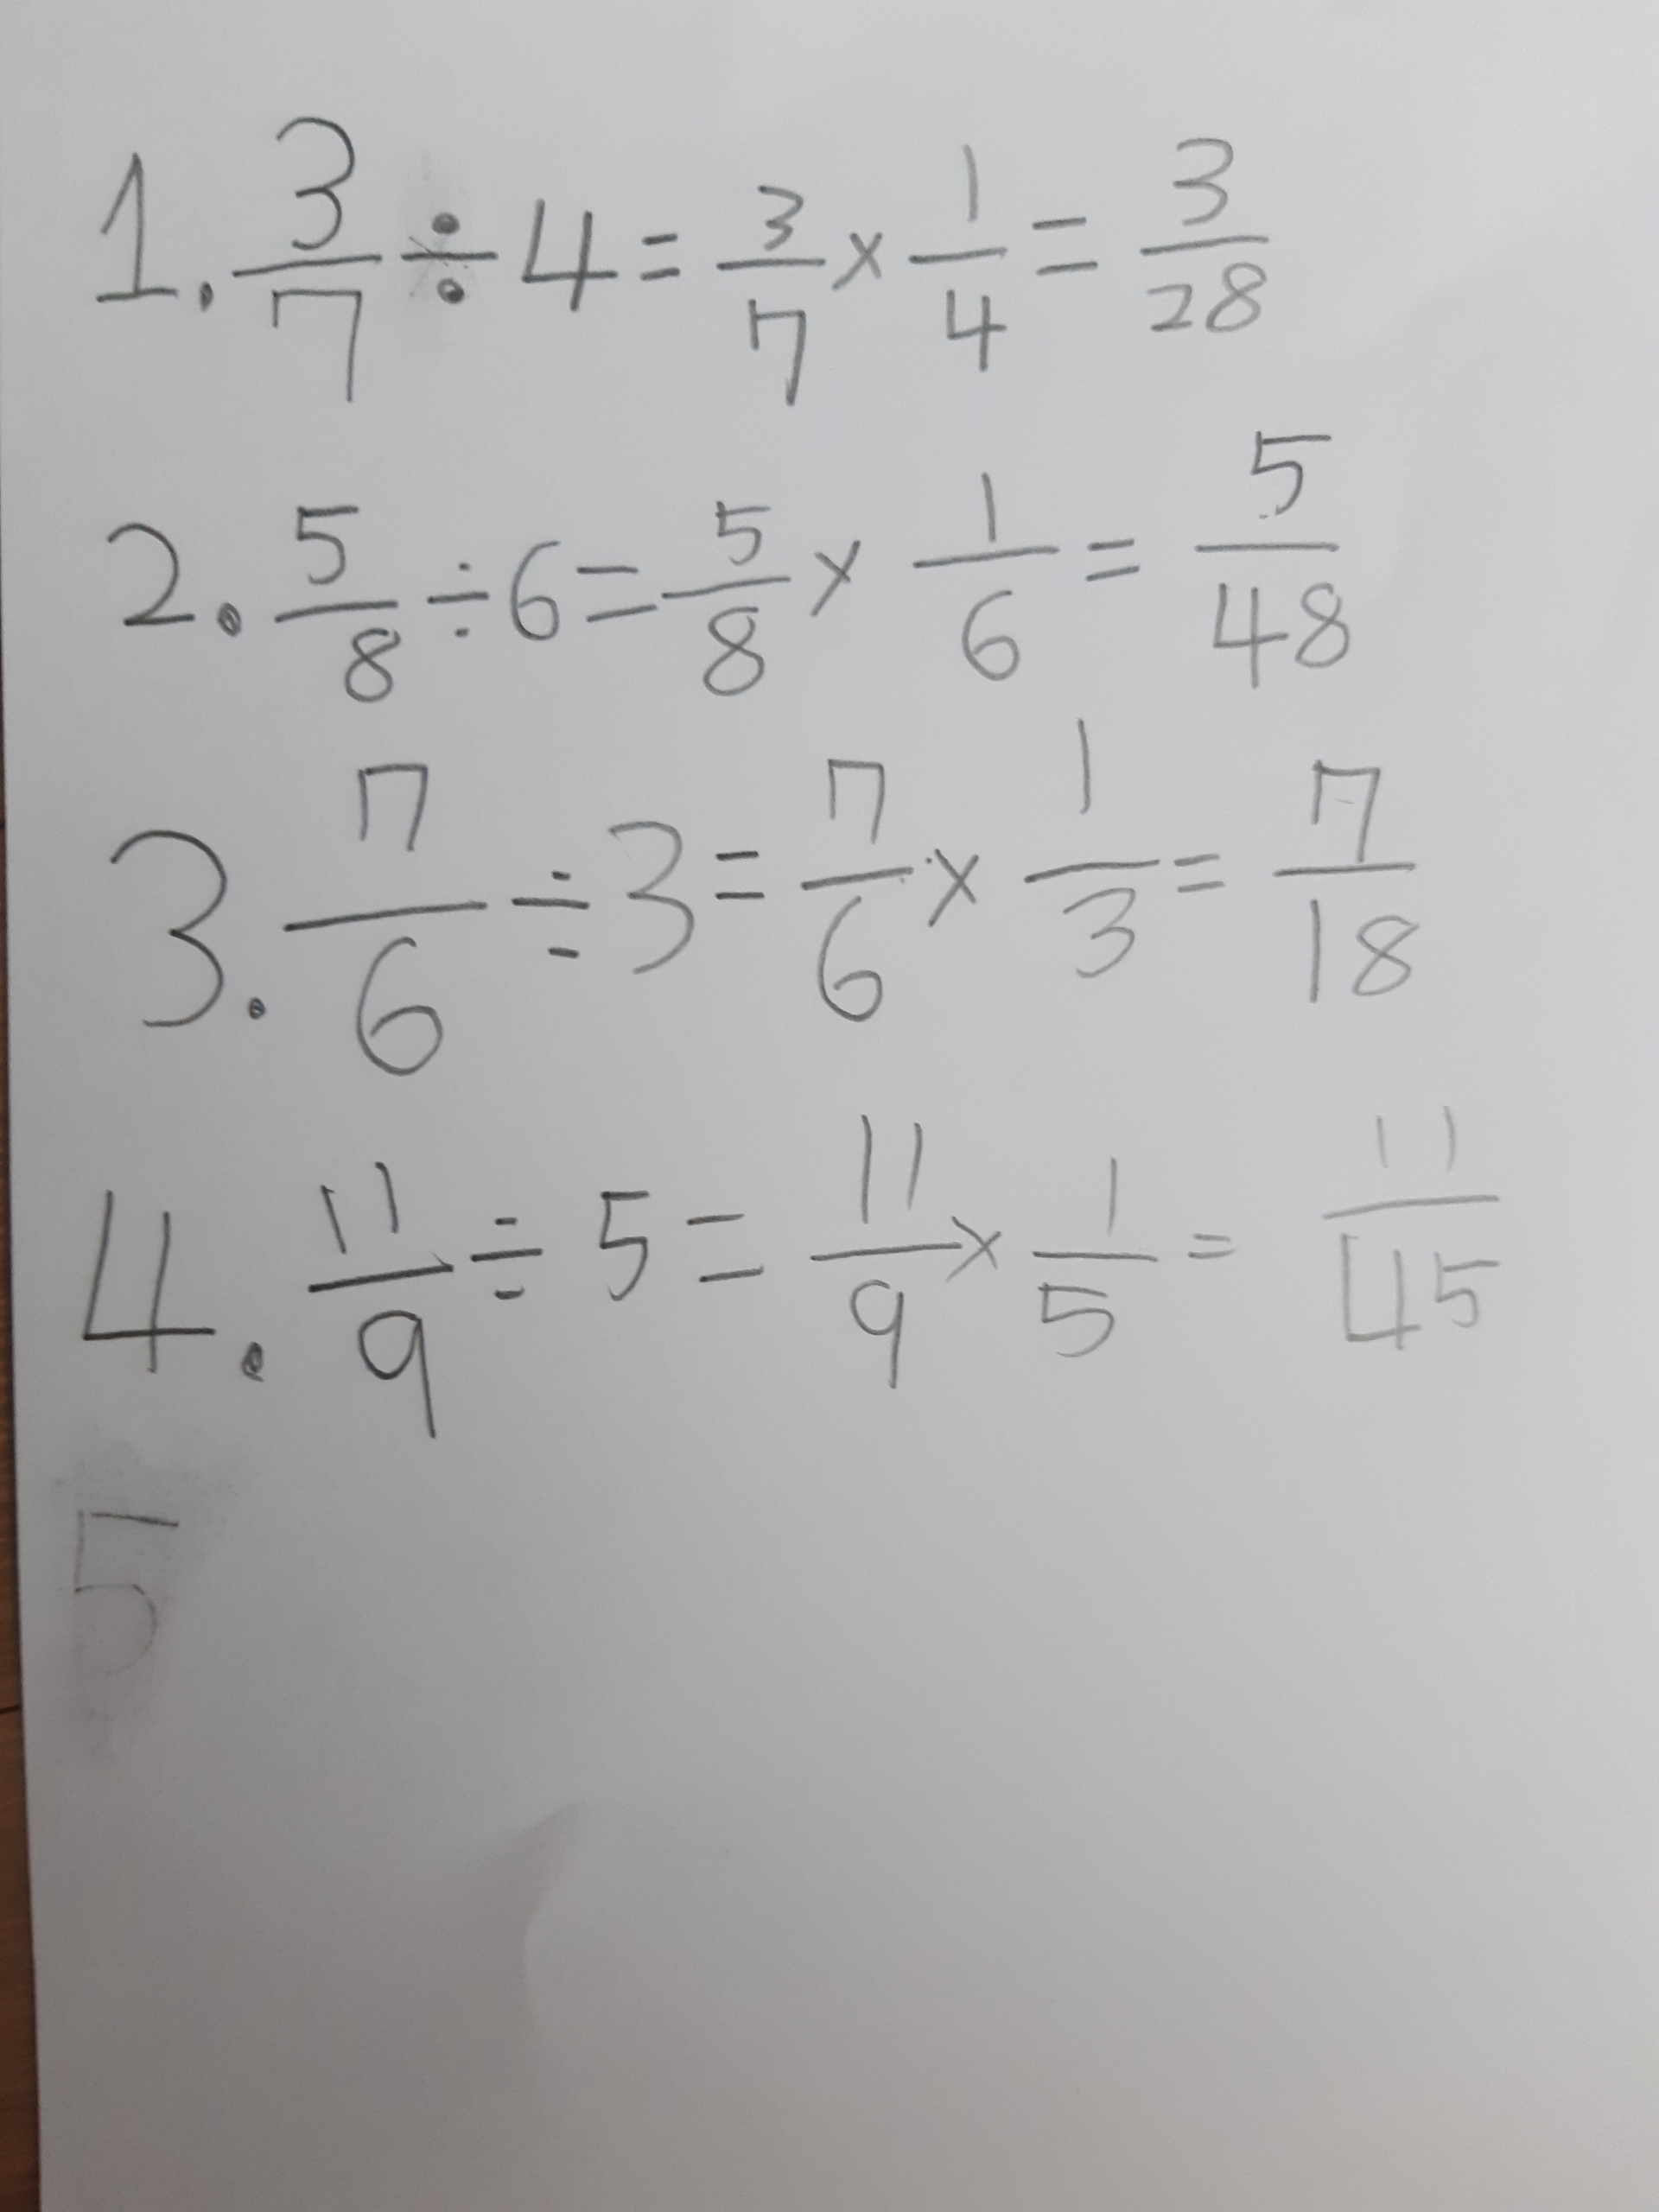 1. 3/7 ÷ 4 = 3/7 × 1/4 = 3/28
2. 5/8 ÷ 6 = 5/8 × 1/6 = 5/48
3. 7/6 ÷ 3 = 7/6 × 1/3 = 7/18
4. 11/9 ÷ 5 = 11/9 × 1/5 = 11/45
5